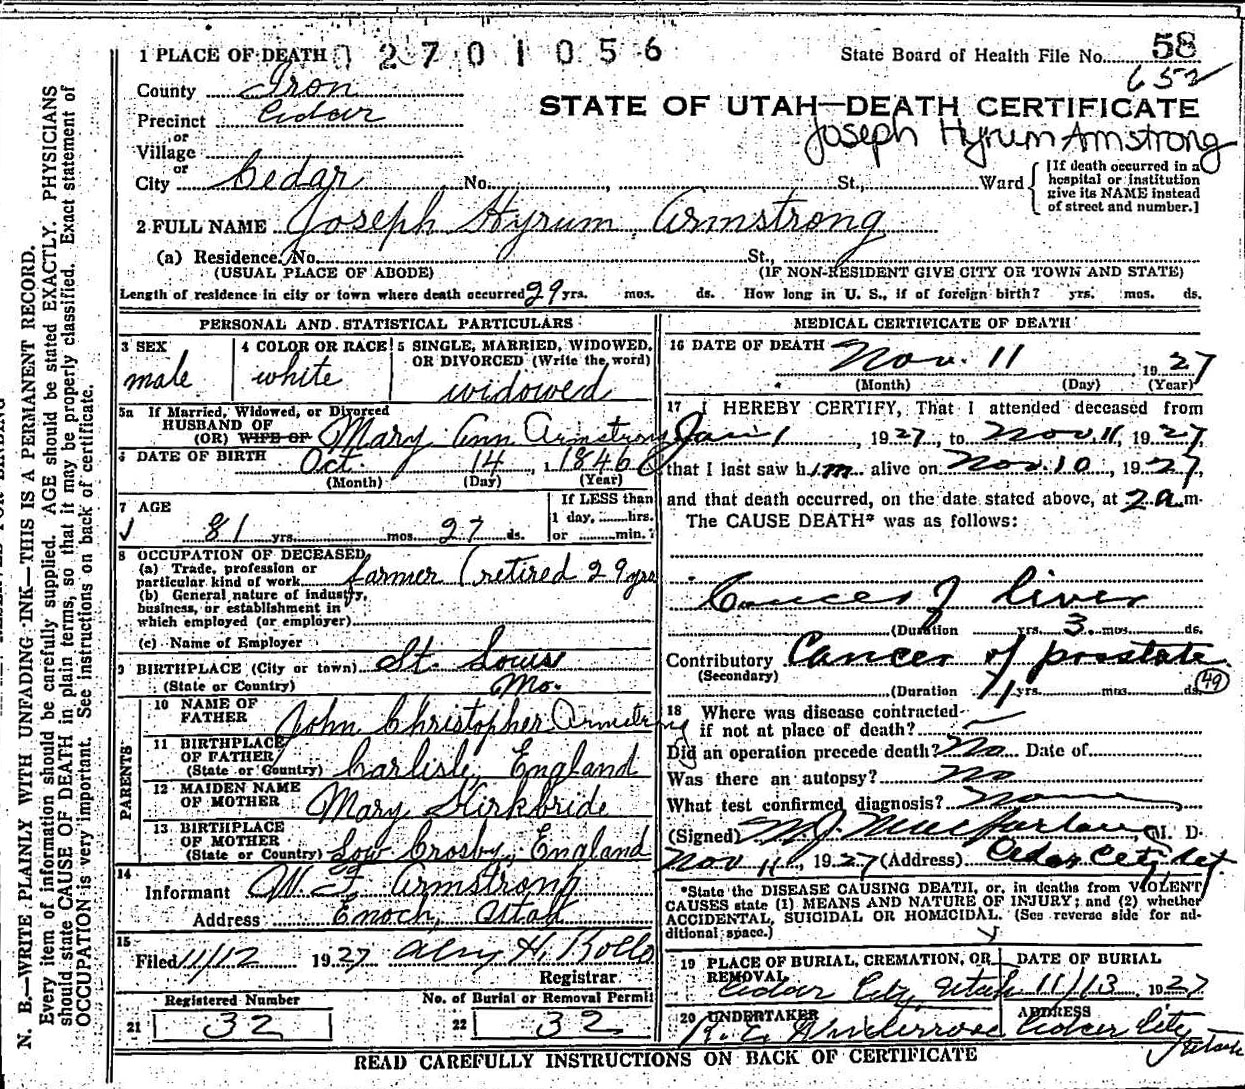 1 PLACE OF DEATH 02701056 State Board of Health File No. 58
652
County Iron
STATE OF UTAH—DEATH CERTIFICATE
Precinct Cedar
Joseph Hyrum Armstrong
or
Village
or
City Cedar No. , St., Ward
[If death occurred in a hospital or institution give its NAME instead of street and number.]
2 FULL NAME Joseph Hyrum Armstrong
(a) Residence. No. St.,
(USUAL PLACE OF ABODE) (IF NON-RESIDENT GIVE CITY OR TOWN AND STATE)
Length of residence in city or town where death occurred 29 yrs. mos. ds. How long in U. S., if of foreign birth? yrs. mos. ds.
PERSONAL AND STATISTICAL PARTICULARS
3 SEX
male
4 COLOR OR RACE
white
5 SINGLE, MARRIED, WIDOWED,
OR DIVORCED (Write the word)
widowed
5a If Married, Widowed, or Divorced
HUSBAND OF
(OR) WIFE OF Mary Ann Armstrong
6 DATE OF BIRTH Oct. 14, 1846
(Month) (Day) (Year)
7 AGE
81 yrs. mos. 27 ds.
If LESS than
1 day, hrs.
or min.?
8 OCCUPATION OF DECEASED
(a) Trade, profession or
particular kind of work farmer (retired 29 yrs
(b) General nature of industry,
business, or establishment in
which employed (or employer)
(c) Name of Employer
9 BIRTHPLACE (City or town) St. Louis
(State or Country) Mo.
PARENTS
10 NAME OF
FATHER John Christopher Armstrong
11 BIRTHPLACE
OF FATHER
(State or Country) Carlisle, England
12 MAIDEN NAME
OF MOTHER Mary Kirkbride
13 BIRTHPLACE
OF MOTHER
(State or Country) Low Crosby, England
14
Informant Armstrong
Address Enoch, Utah
15
Filed 11/12 1927
Registrar.
Registered Number
21 32
No. of Burial or Removal Permit
22 32
MEDICAL CERTIFICATE OF DEATH
16 DATE OF DEATH Nov. 11, 1927
(Month) (Day) (Year)
17 I HEREBY CERTIFY, That I attended deceased from
Jan 1, 1927, to Nov 11, 1927,
that I last saw him alive on Nov. 10, 1927,
and that death occurred, on the date stated above, at 2 a.m.
The CAUSE DEATH* was as follows:
Cancer of liver
(Duration yrs. 3 mos. ds.
Contributory Cancer of prostate
(Secondary) 49
(Duration 1 yrs. mos. ds.
18 Where was disease contracted
if not at place of death?
Did an operation precede death? No Date of
Was there an autopsy? no
What test confirmed diagnosis? None
(Signed) M. J. Macfarlane M. D.
Nov 11, 1927 (Address) Cedar City, Ut.
*State the DISEASE CAUSING DEATH, or, in deaths from VIOLENT
CAUSES state (1) MEANS AND NATURE OF INJURY; and (2) whether
ACCIDENTAL, SUICIDAL OR HOMICIDAL. (See reverse side for ad-
ditional space.)
19 PLACE OF BURIAL, CREMATION, OR
REMOVAL
Cedar City, Utah
DATE OF BURIAL
11/13 1927
20 UNDERTAKER
ADDRESS
Cedar City
Utah
READ CAREFULLY INSTRUCTIONS ON BACK OF CERTIFICATE
N. B.—WRITE PLAINLY WITH UNFADING INK—THIS IS A PERMANENT RECORD.
Every item of information should be carefully supplied. AGE should be stated EXACTLY. PHYSICIANS
should state CAUSE OF DEATH in plain terms, so that it may be properly classified. Exact statement of
OCCUPATION is very important. See instructions on back of certificate.